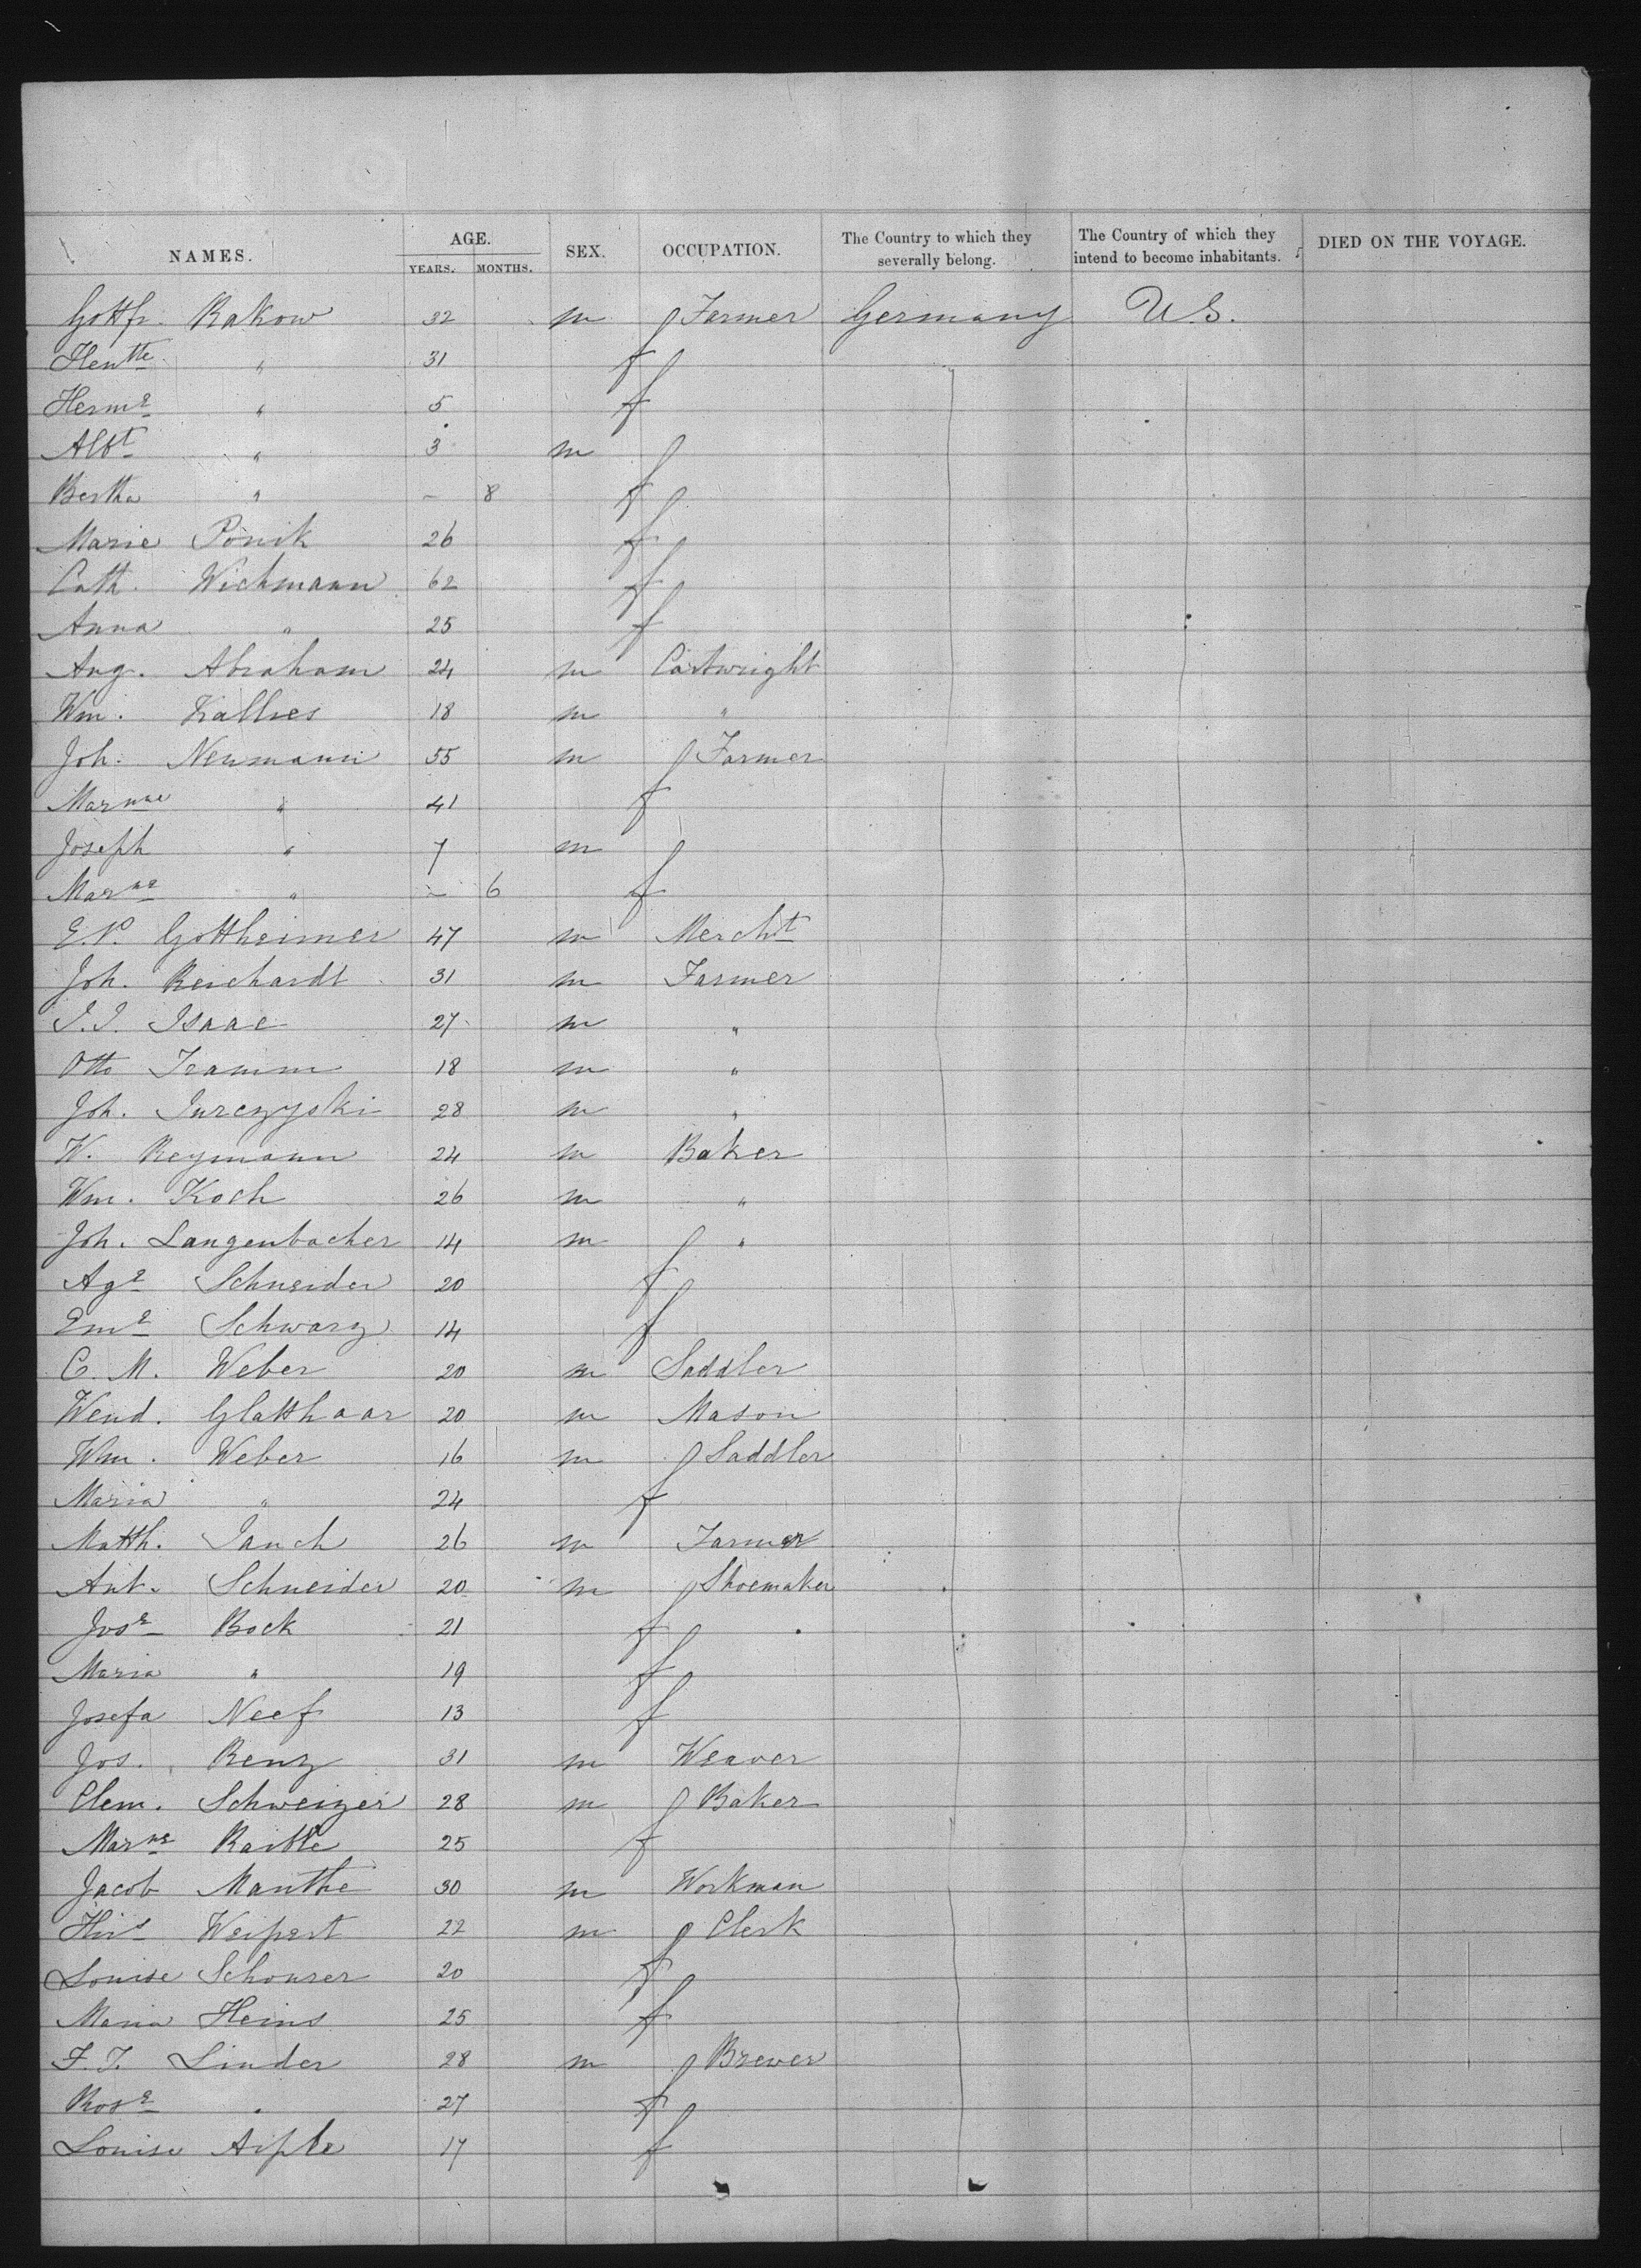 NAMES. AGE. SEX. OCCUPATION. The Country to which they severally belong. The Country of which they intend to become inhabitants. DIED ON THE VOYAGE.
YEARS. MONTHS.
Gottfr. Rakow 32 m Farmer Germany U.S.
Hentte " 31 f
Herme " 5 f
Albt " 3 m
Bertha " – 8 f
Marie Ponik 26 f
Cath. Wichmann 62 f
Anna " 25 f
Aug. Abraham 24 m Cartwright
Wm. Kallies 18 m "
Joh. Neumann 55 m Farmer
Marnne " 41 f
Joseph " 7 m
Marne " – 6 f
E. P. Gottheimer 47 m Mercht
Joh. Reichardt 31 m Farmer
I. I. Isaac 27 m "
Otto Tramm 18 m "
Joh. Jurczyski 28 m "
W. Reymann 24 m Baker
Wm. Koch 26 m "
Joh. Langenbacher 14 m "
Age Schneider 20 f
Eme Schwarz 14 f
C. M. Weber 20 m Saddler
Wend. Glatthaar 20 m Mason
Wm. Weber 16 m Saddler
Maria " 24 f
Matth. Jauch 26 m Farmer
Ant. Schneider 20 m Shoemaker
Jose Bock 21 f
Maria " 19 f
Josefa Neef 13 f
Jos. Renz 31 m Weaver
Clem. Schweizer 28 m Baker
Marne Raible 25 f
Jacob Manthe 30 m Workman
Weipert 22 m Clerk
Louise Schourer 20 f
Maria Heins 25 f
F. J. Linder 28 m Brewer
Rose " 27 f
Louise Aiple 17 f